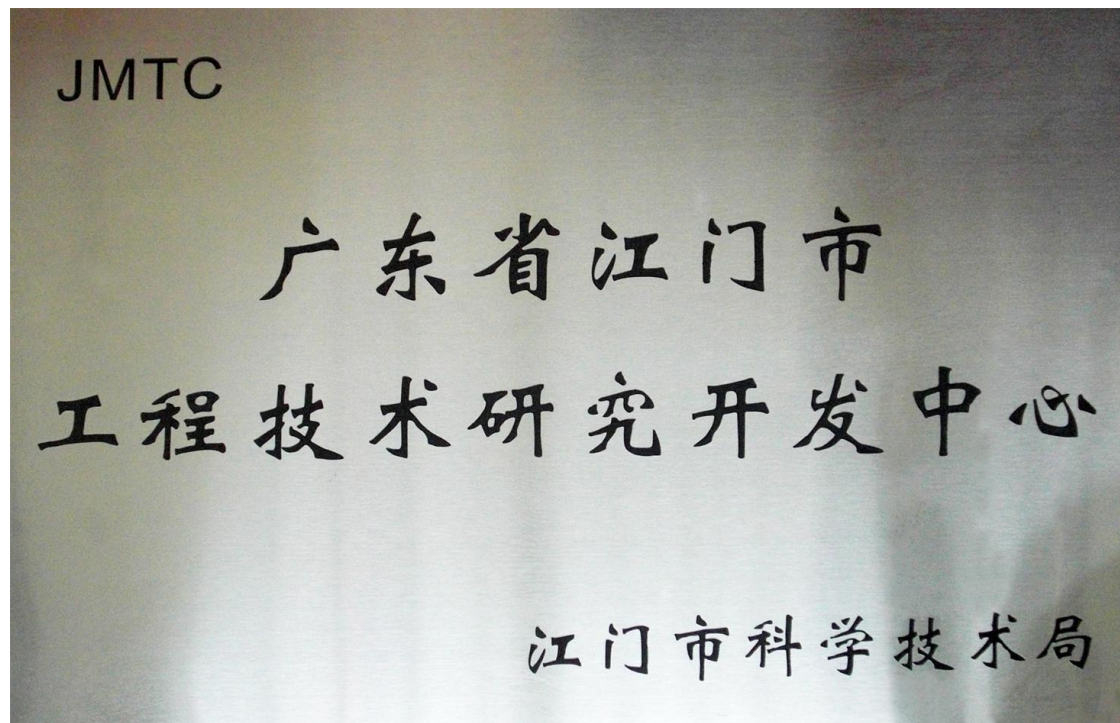 JMTC
广东省江门市
工程技术研究开发中心
江门市科学技术局